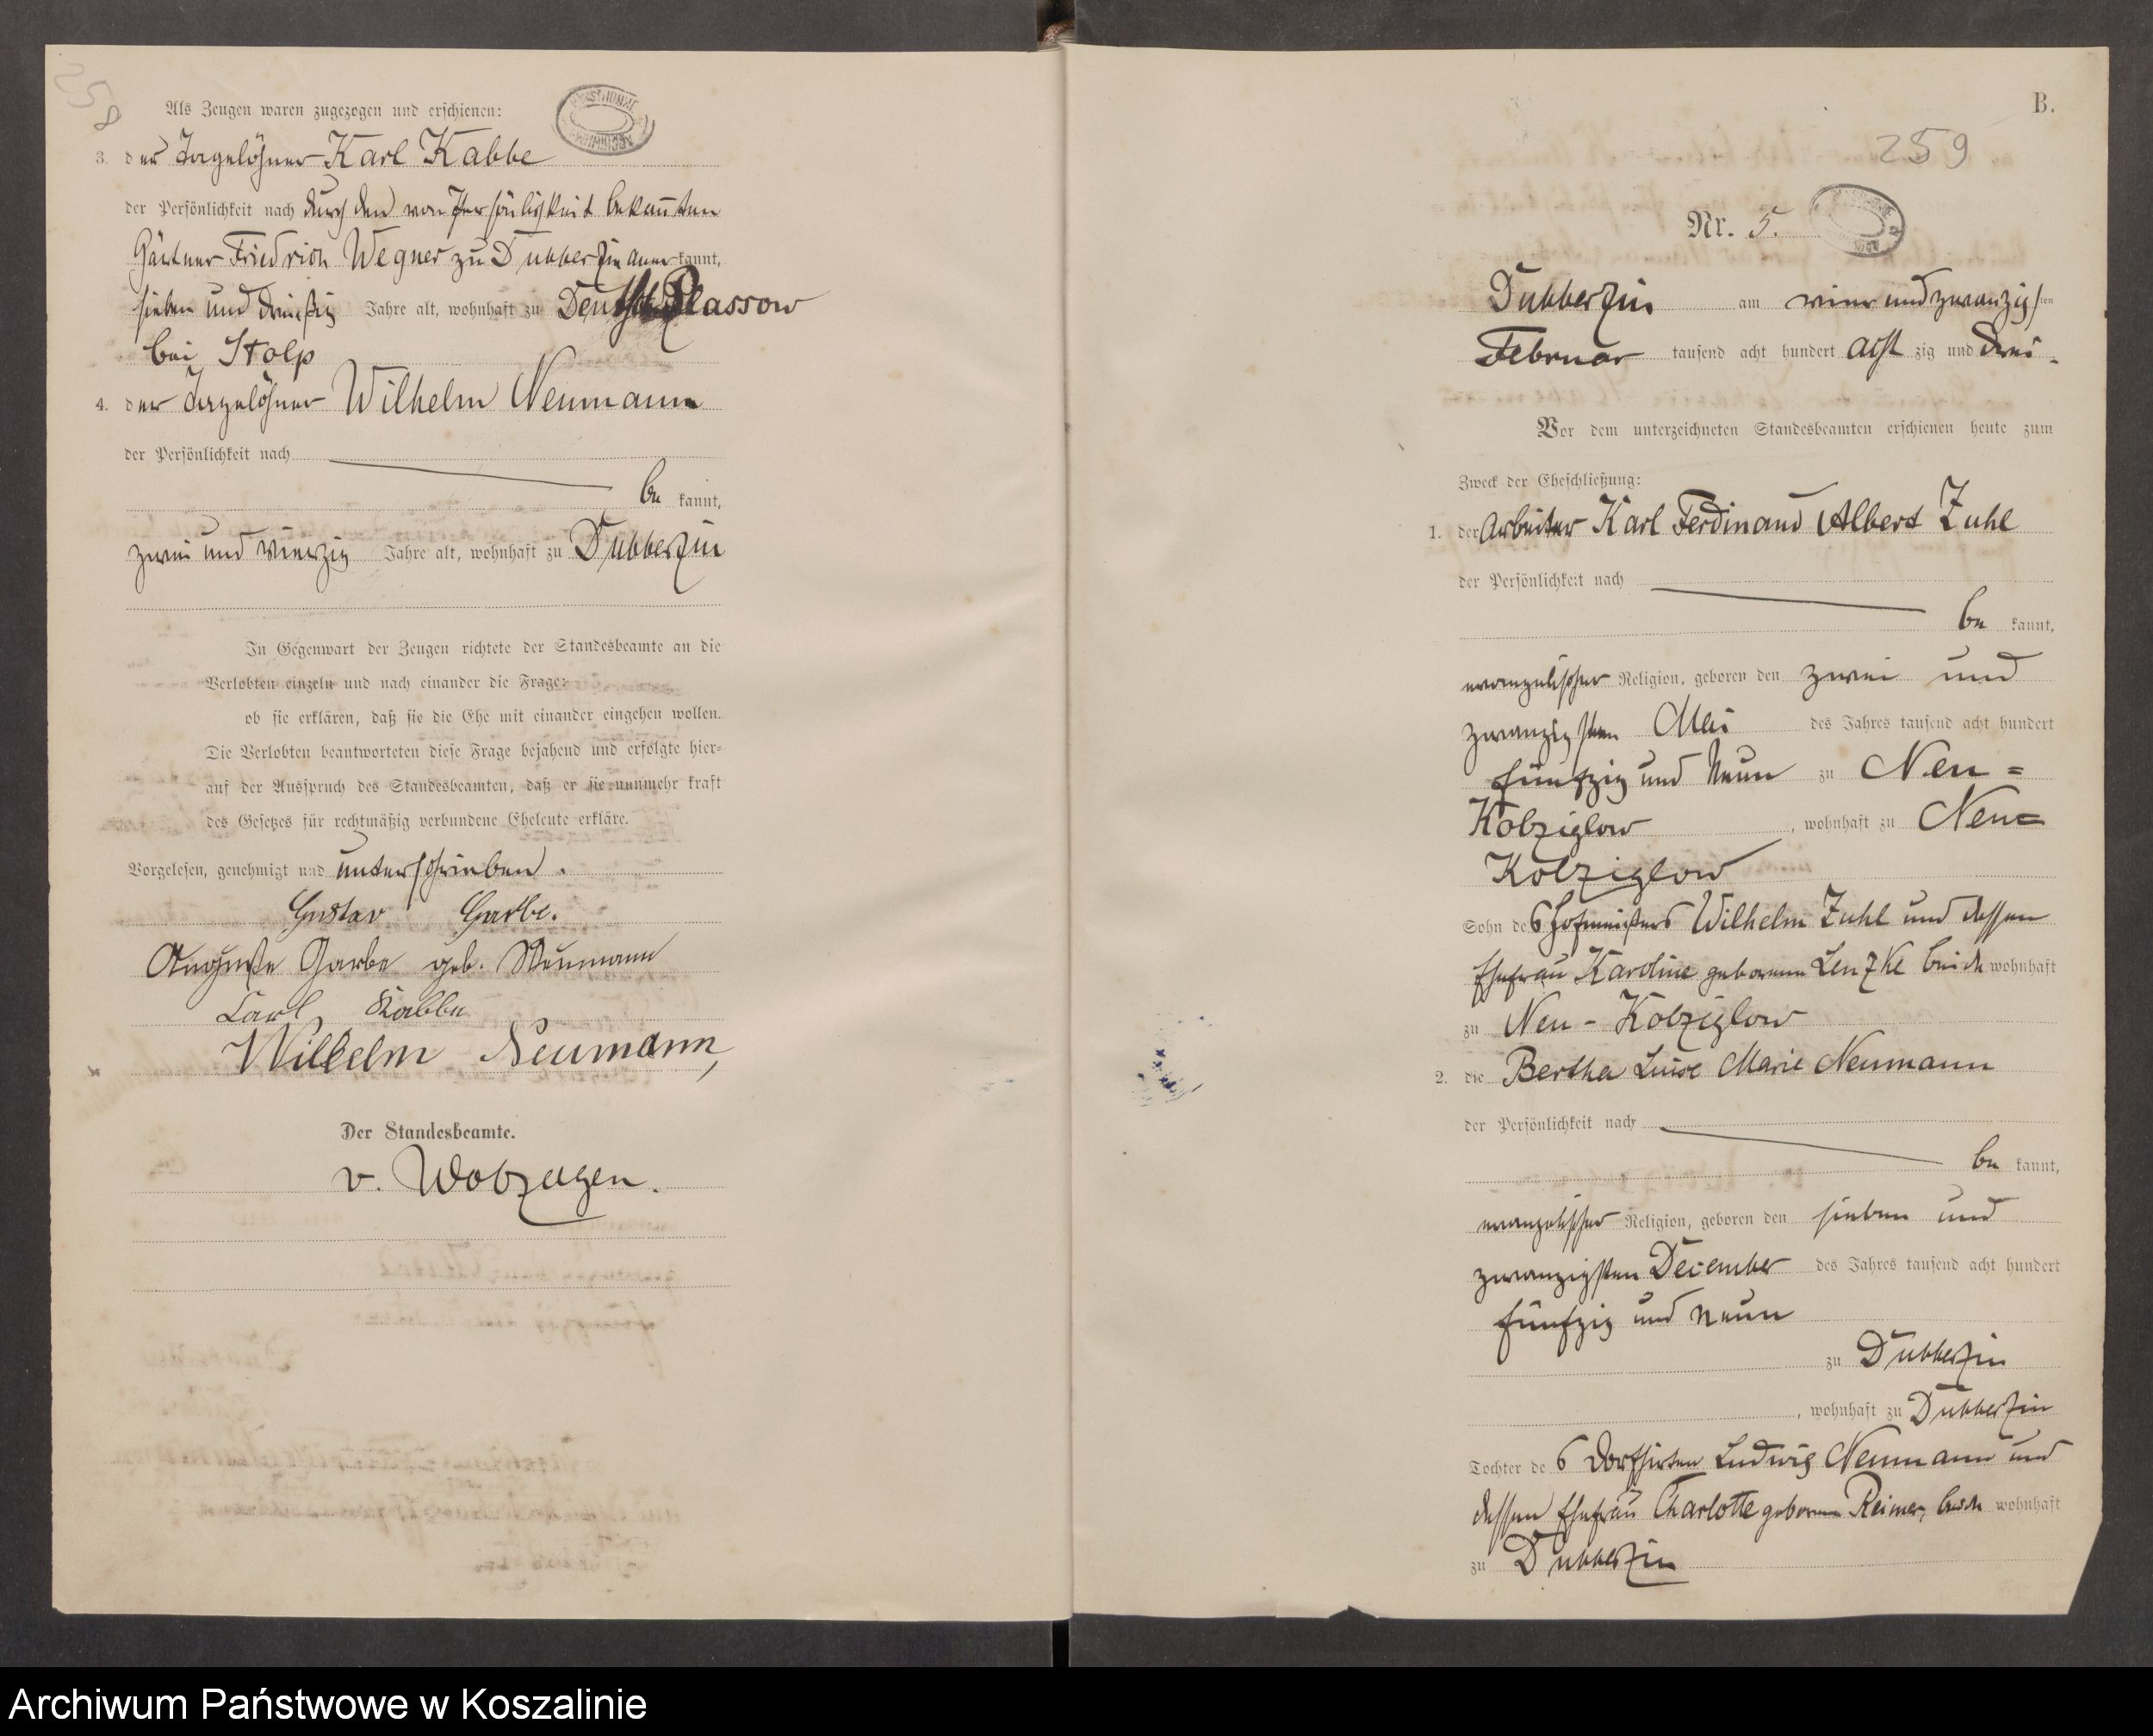 258
Als Zeugen waren zugezogen und erschienen:
3. der Tagelöhner Karl Kabbe
der Persönlichkeit nach durch den von Persönlichkeit bekannten
Gärtner Friedrich Wegner zu Dubberzin anerkannt,
sieben und dreißig Jahre alt, wohnhaft zu Deutsch Plassow
bei Stolp
4. der Tagelöhner Wilhelm Neumann
der Persönlichkeit nach
be kannt,
zwei und vierzig Jahre alt, wohnhaft zu Dubberzin
In Gegenwart der Zeugen richtete der Standesbeamte an die
Verlobten einzeln und nach einander die Frage:
ob sie erklären, daß sie die Ehe mit einander eingehen wollen.
Die Verlobten beantworteten diese Frage bejahend und erfolgte hier-
auf der Ausspruch des Standesbeamten, daß er sie nunmehr kraft
des Gesetzes für rechtmäßig verbundene Eheleute erkläre.
Vorgelesen, genehmigt und unterschrieben.
Gustav Garbe.
Auguste Garbe geb. Neumann
Carl Kabbe
Wilhelm Neumann,
Der Standesbeamte.
v. Wobzugen.
B.
259
Nr. 5.
Dubberzin am vier und zwanzigsten
Februar tausend acht hundert acht zig und drei.
Vor dem unterzeichneten Standesbeamten erschienen heute zum
Zweck der Eheschließung:
1. der Arbeiter Karl Ferdinand Albert Zuhl
der Persönlichkeit nach
be kannt,
evangelischer Religion, geboren den zwei und
zwanzigsten Mai des Jahres tausend acht hundert
fünfzig und neun zu Neu=
Kolziglow, wohnhaft zu Neu=
Kolziglow
Sohn des Hofmeisters Wilhelm Zuhl und dessen
Ehefrau Karoline geborenen Lenzke beide wohnhaft
zu Neu-Kolziglow
2. die Bertha Luise Marie Neumann
der Persönlichkeit nach
be kannt,
evangelischer Religion, geboren den sieben und
zwanzigsten December des Jahres tausend acht hundert
fünfzig und neun
zu Dubberzin
, wohnhaft zu Dubberzin
Tochter des Dorfhirten Ludwig Neumann und
dessen Ehefrau Charlotte geborene Reimer, beide wohnhaft
zu Dubberzin
Archiwum Państwowe w Koszalinie